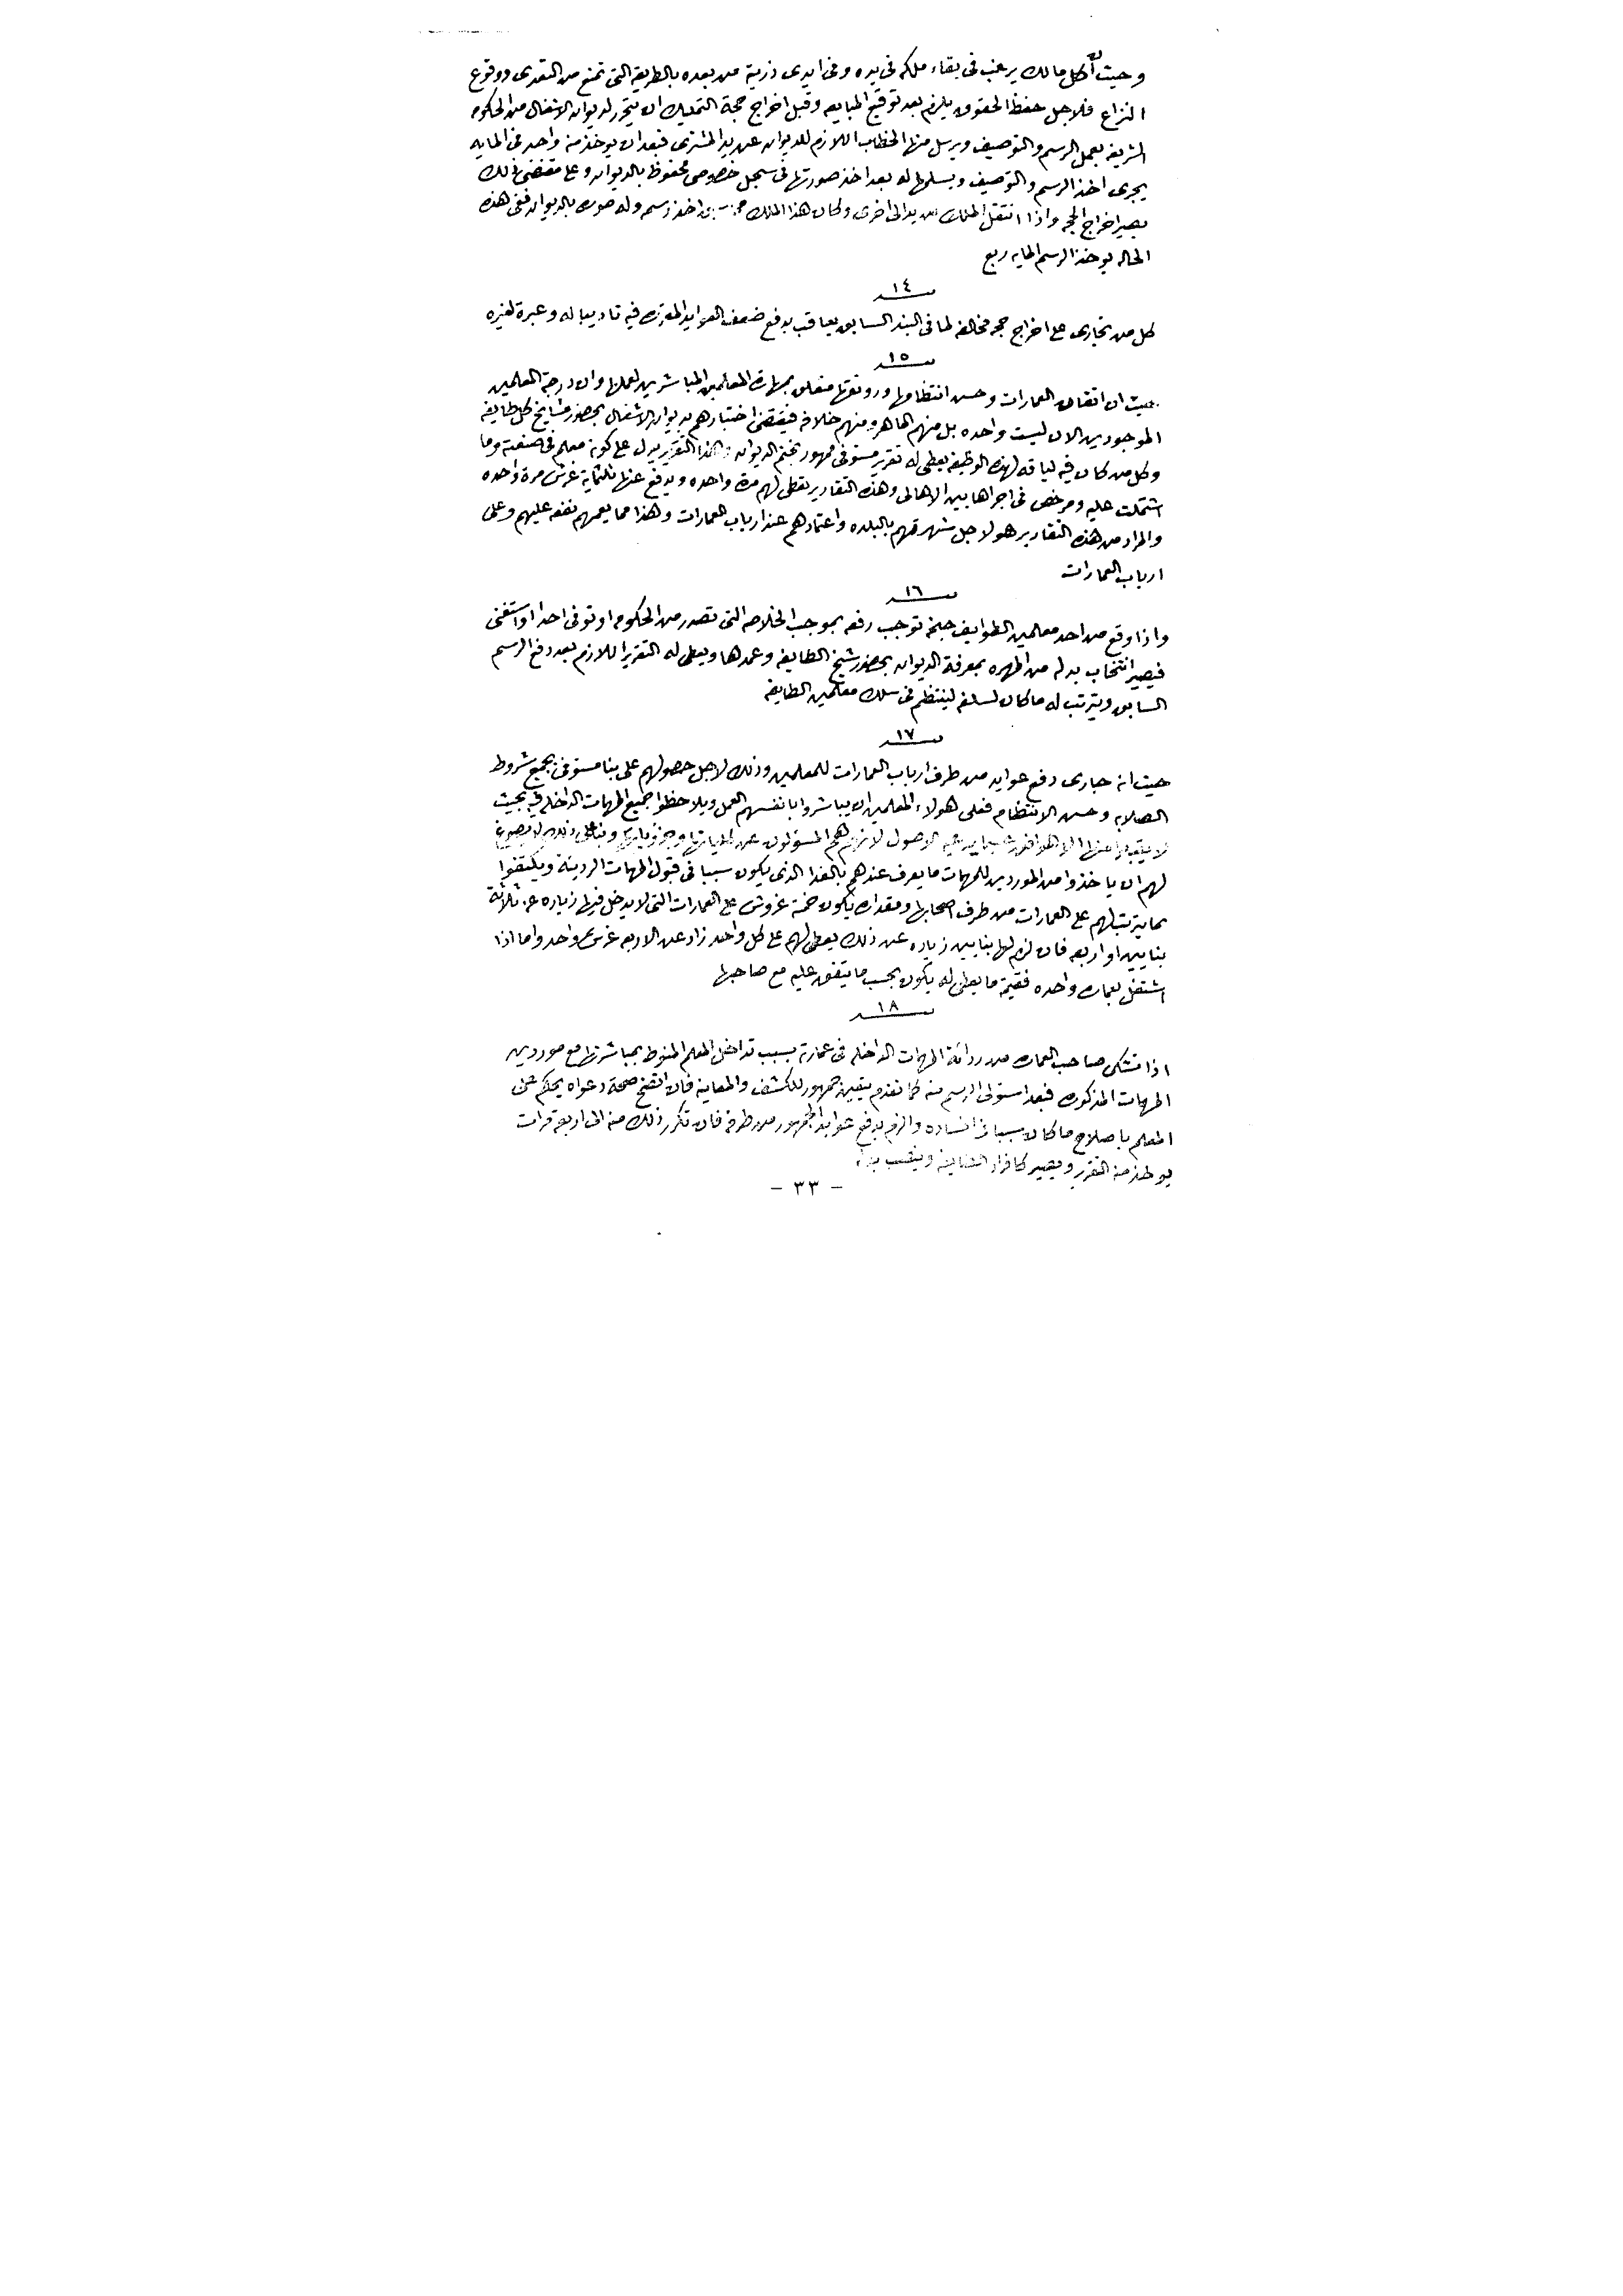 وحيث أن كل مالك يرغب فى بقاء ملكه فى يده وفى ايدى ذريته من بعده بالطريقة التى تمنع من التعدى ووقوع
النزاع فلاجل حفظ الحقوق يلزم بعد توقيع المبايعه وقبل اخراج حجة التمليك ان يتحرر لديوان الاشغال من المحكمه
الشريفه بعمل الرسم والتوصيف ويرسل منها الخطاب اللازم للديوان عن يد المشترى فبعد ان يوخذ منه واحد فى المايه
يجرى اخذ الرسم والتوصيف ويسلمها له بعد اخذ صورتها فى سجل خصوصى محفوظ بالديوان وعلى مقتضى ذلك
يصير اخراج الحجه واذا انتقل الملك من يد الى اخرى وكان هذا الملك اخذ رسمه وله صوره بالديوان ففى هذه
الحاله يوخذ الرسم المايه ربع
١٤
كل من تجارى على اخراج حجه مخالفه لما فى البند السابق يعاقب بدفع ضعف العوايد المقرره فيه تاديبا له وعبرة لغيره
١٥
حيث ان اتقان العمارات وحسن انتظامها ورونقها متعلق بمهارة المعلمين المباشرين لعملها وان درجة المعلمين
الموجودين الان ليست واحده بل منهم الماهر ومنهم خلافه فيقتضى اختبارهم بديوان الاشغال بحضور مشايخ كل طايفه
وكل من كان فيه لياقه لهذه الوظيفه يعطى له تقرير مستوفى ممهور بختم الديوان وهذا التقرير يدل على كونه معلم فى صنعته وما
اشتملت عليه ومرخص فى اجراها بين الاهالى وهذه التقارير تعطى لهم مرة واحده ويدفع عنها ثلثماية غرش مرة واحده
والمراد من هذه التقارير هو لاجل شهرتهم بالبلده واعتمادهم عند ارباب العمارات وهذا مما يعمهم نفعه عليهم وعلى
ارباب العمارات
١٦
واذا وقع من احد معلمين الطوايف جنحه توجب رفعه بموجب الخلاصه التى تصدر من الحكومه او توفى احد او استعفى
فيصير انتخاب بدله من المهره بمعرفة الديوان بحضور شيخ الطايفه وعمدها ويعطى له التقرير اللازم بعد دفع الرسم
السابق ويترتب له ما كان لسلفه لينتظم فى سلك معلمين الطايفه
١٧
حيث انه جارى دفع عوايد من طرف ارباب العمارات للمعلمين وذلك لاجل حصولهم على بنا مستوفى بجميع شروط
الصلابه وحسن الانتظام فعلى هولاء المعلمين ان يباشروا بانفسهم العمل ويلاحظوا جميع المهمات الداخله فيه بحيث
لا يقبلوا منها الا الاصول لانهم هم المسؤلون عن وبناء على ذلك لا يصوغ
لهم ان ياخذوا من الموردين للمهمات ما يعرف عندهم بالغدا الذى يكون سببا فى قبول المهمات الرديئة ويكتفوا
بما يترتب لهم على العمارات من طرف اصحابها ومقداره يكون خمسة غروش على العمارات التى لا يدخل فيها زياده عن ثلاثة
بنايين او اربعه فان لزم لها بنايين زياده عن ذلك يعطى لهم على كل واحد زاد عن الاربعه غرش واحد واما اذا
اشتغل بعماره واحده فقيمة ما يعطى له يكون بحسب ما يتفق عليه مع صاحبها
١٨
اذا تشكى صاحب العماره من رداءة المهمات الداخله فى عمارته بسبب تداخل المعلم المنوط بمباشرتها مع موردين
المهمات المذكوره فبعد استولى الرسم منه كما تقدم يتعين جمهور للكشف والمعاينه فان اتضح صحة دعواه يحكم على
المعلم باصلاح ما كان سببا فى افساده والزم بدفع عوايد الجمهور من طرفه فان تكرر ذلك منه الى اربعة مرات
يوخذ منه التقرير ويصير كافراد الطايفه وينتخب بدله
- ٣٣ -